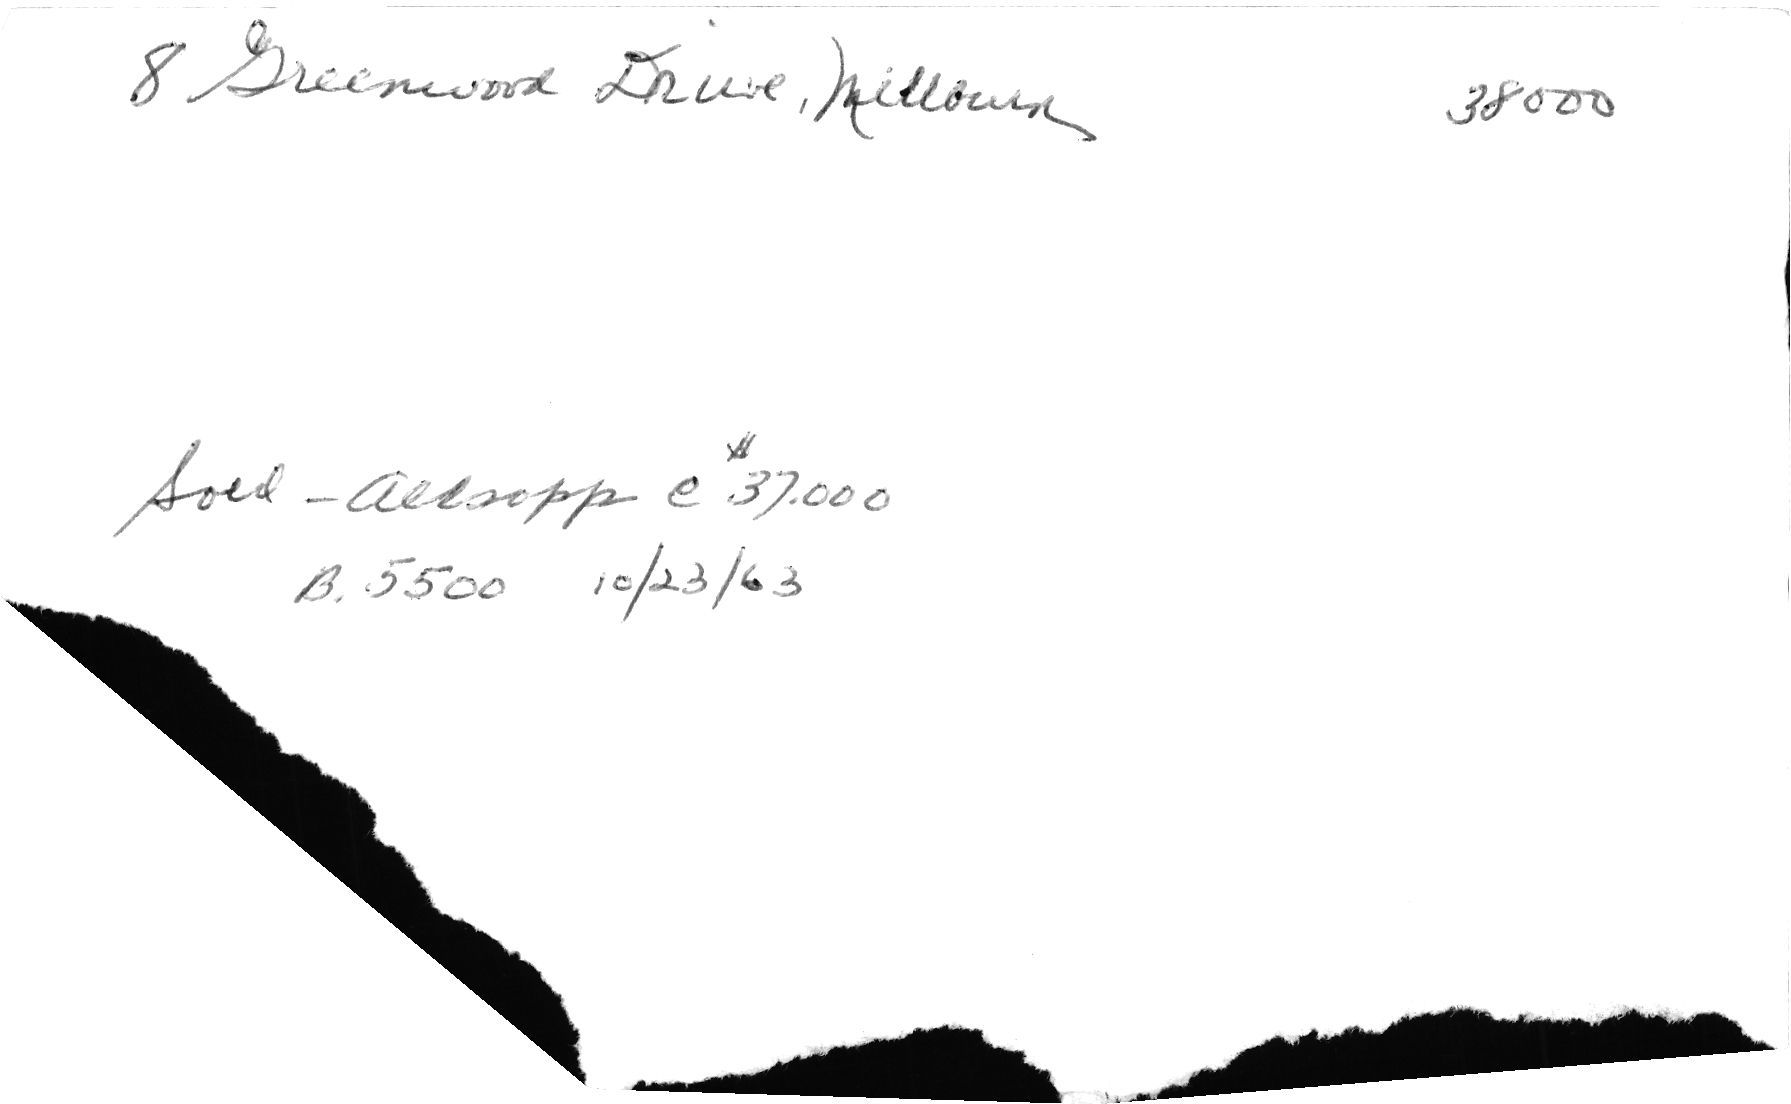 8 Greenwood Drive, Millburn 38000
Sold - Allsopp @ $37.000
B. 5500 10/23/63